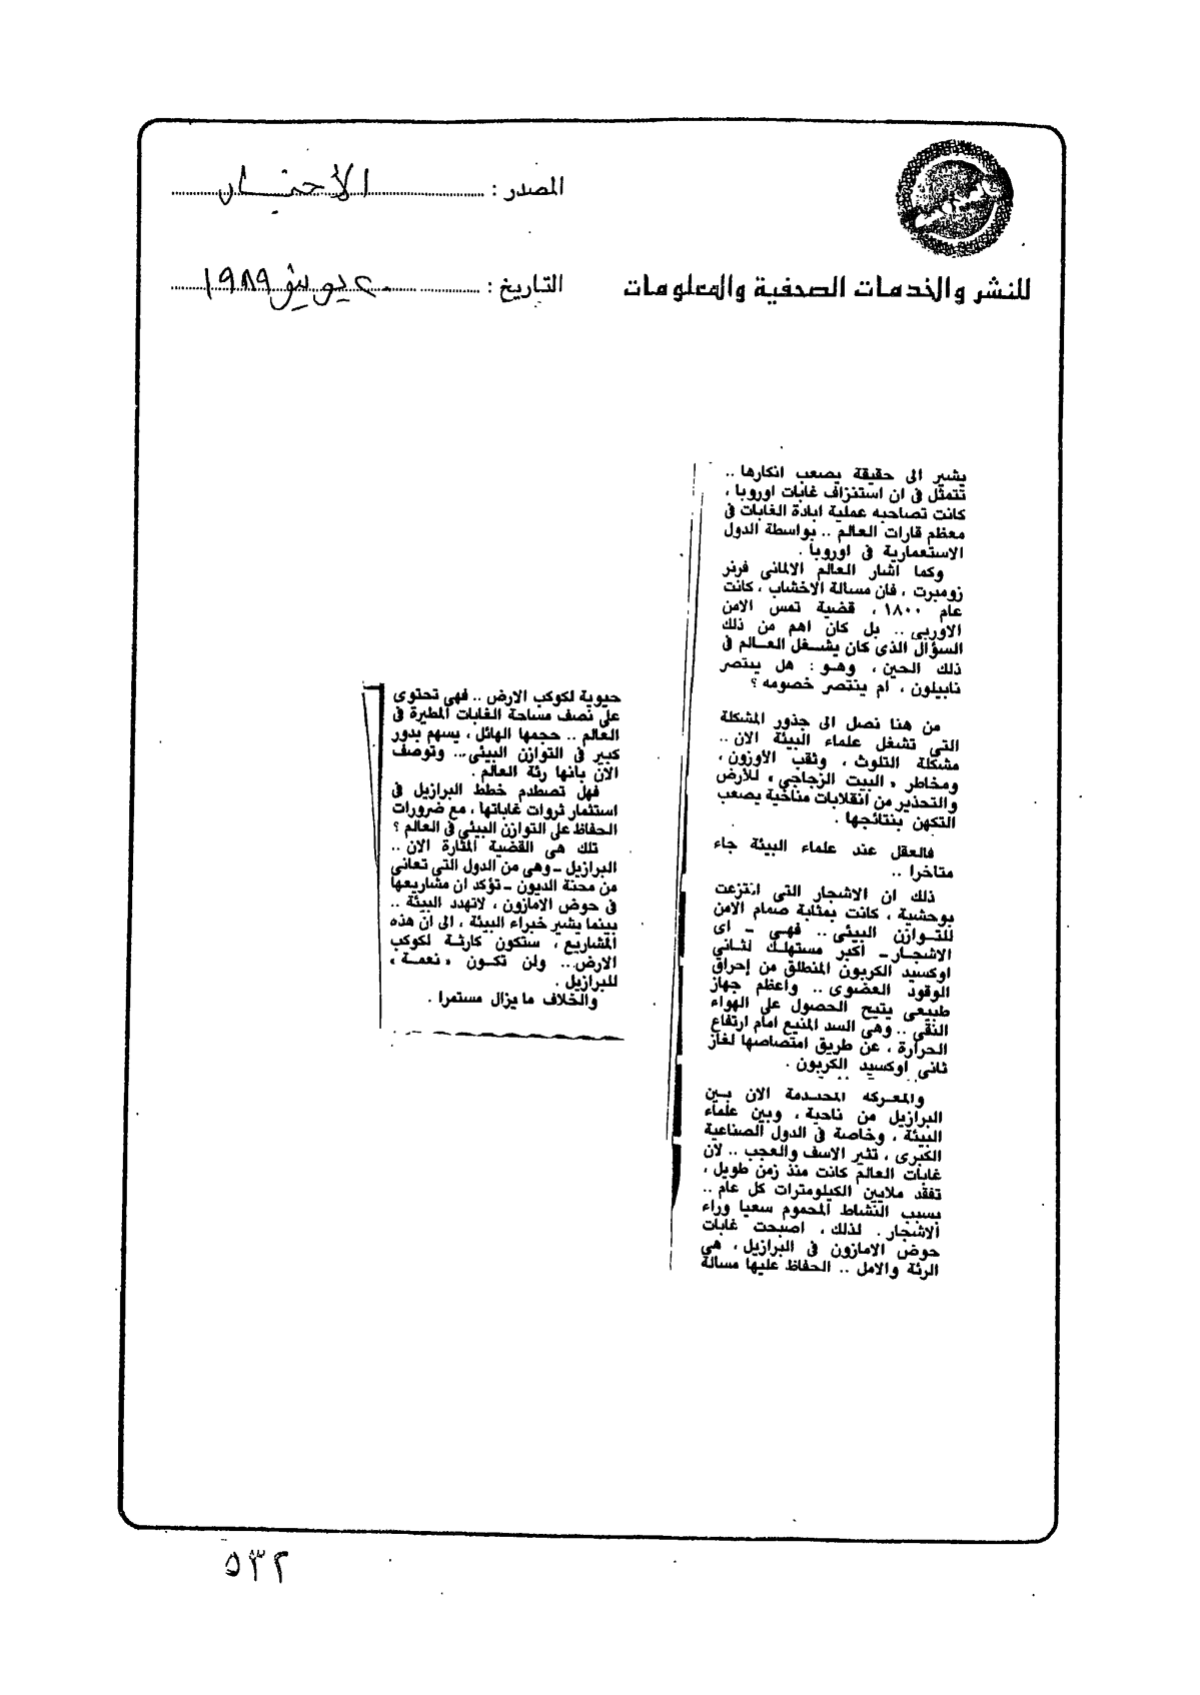 المصدر : الأخبار
للنشر والخدمات الصحفية والمعلومات
التاريخ : ٢٠ يونيو ١٩٨٩
يشير الى حقيقة يصعب انكارها ..
تتمثل فى ان استنزاف غابات اوروبا ،
كانت تصاحبه عملية ابادة الغابات فى
معظم قارات العالم .. بواسطة الدول
الاستعمارية فى اوروبا .
وكما اشار العالم الالمانى فرنر
زومبرت ، فان مسالة الاخشاب ، كانت
عام ١٨٠٠ ، قضية تمس الامن
الاوربى .. بل كان اهم من ذلك
السؤال الذى كان يشغل العالم فى
ذلك الحين ، وهو : هل ينتصر
نابيلون ، ام ينتصر خصومه ؟
من هنا نصل الى جذور المشكلة
التى تشغل علماء البيئة الان ..
مشكلة التلوث ، وثقب الأوزون ،
ومخاطر « البيت الزجاجي » للأرض
والتحذير من انقلابات مناخية يصعب
التكهن بنتائجها .
فالعقل عند علماء البيئة جاء
متاخرا ..
ذلك ان الاشجار التى انتزعت
بوحشية ، كانت بمثابة صمام الامن
للتوازن البيئى .. فهى - اى
الاشجار - اكبر مستهلك لثانى
اوكسيد الكربون المنطلق من إحراق
الوقود العضوى .. واعظم جهاز
طبيعى يتيح الحصول على الهواء
النقى .. وهى السد المنيع امام ارتفاع
الحرارة ، عن طريق امتصاصها لغاز
ثانى اوكسيد الكربون .
والمعركة المحتدمة الان بين
البرازيل من ناحية ، وبين علماء
البيئة ، وخاصة فى الدول الصناعية
الكبرى ، تثير الاسف والعجب .. لأن
غابات العالم كانت منذ زمن طويل ،
تفقد ملايين الكيلومترات كل عام ..
بسبب النشاط المحموم سعيا وراء
الاشجار . لذلك ، اصبحت غابات
حوض الامازون فى البرازيل ، هى
الرئة والامل .. الحفاظ عليها مسالة
حيوية لكوكب الارض .. فهى تحتوى
على نصف مساحة الغابات المطيرة فى
العالم .. حجمها الهائل ، يسهم بدور
كبير فى التوازن البيئى .. وتوصف
الآن بانها رئة العالم .
فهل تصطدم خطط البرازيل فى
استثمار ثروات غاباتها ، مع ضرورات
الحفاظ على التوازن البيئى فى العالم ؟
تلك هى القضية المثارة الان ..
البرازيل - وهى من الدول التى تعانى
من محنة الديون - تؤكد ان مشاريعها
فى حوض الامازون ، لاتهدد البيئة ..
بينما يشير خبراء البيئة ، الى ان هذه
المشاريع ، ستكون كارثة لكوكب
الارض .. ولن تكون « نعمة »
للبرازيل .
والخلاف مايزال مستمرا .
٥٣٢